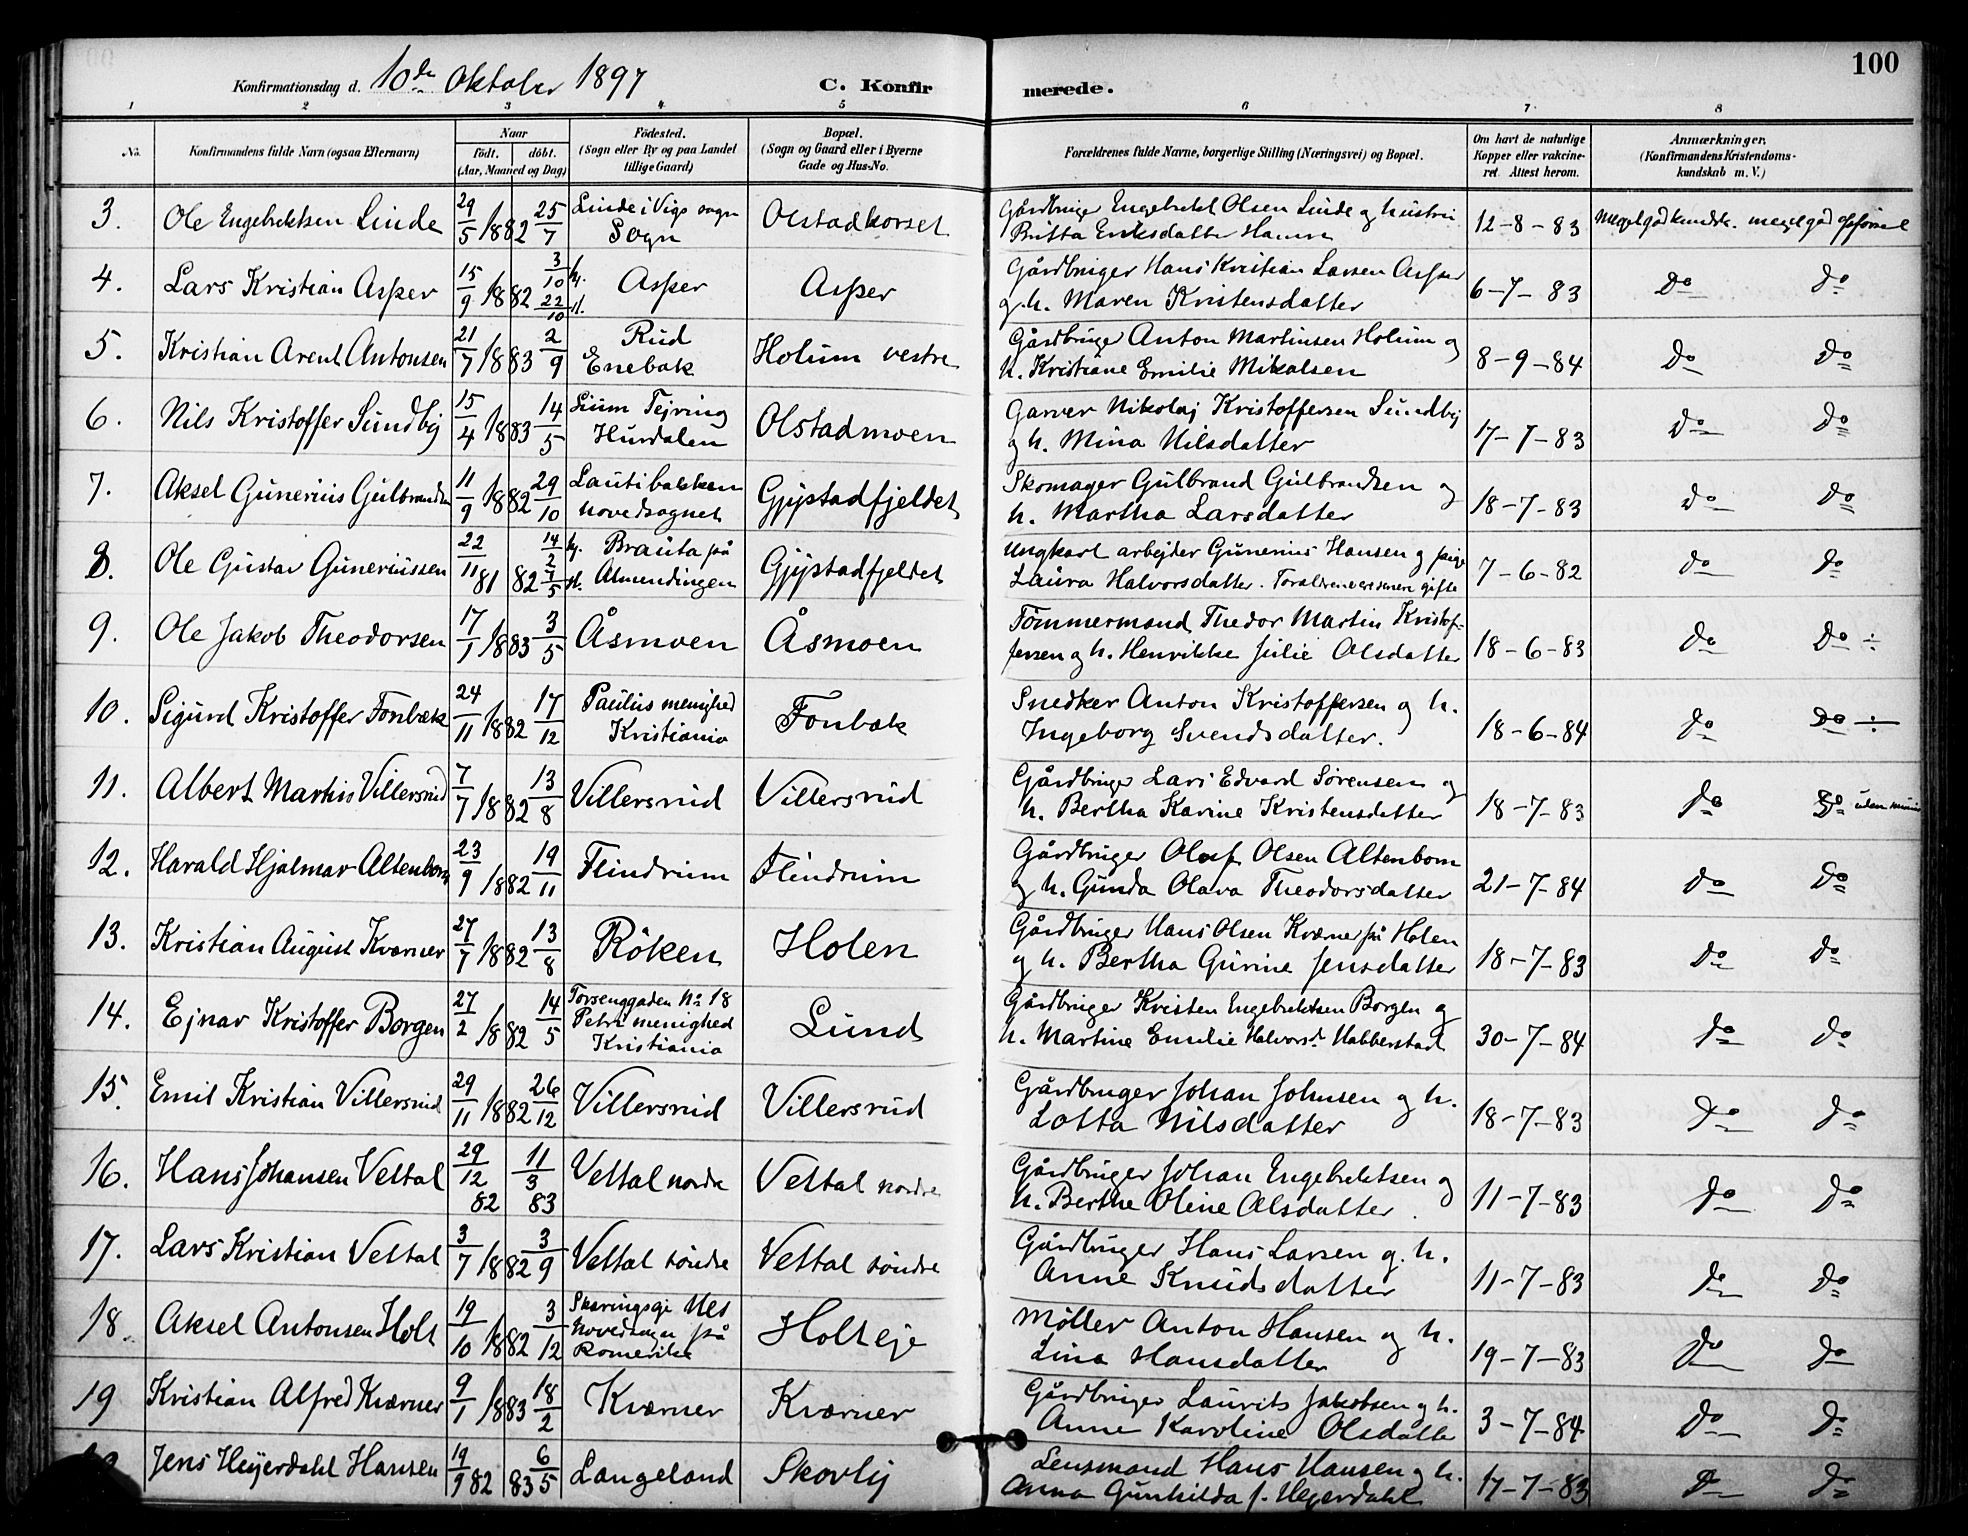 100
Konfirmationsdag d. 10de Oktober 1897 C. Konfirmerede.
1 2 3 4 5 6 7 8
No. Konfirmandens fulde Navn (ogsaa Efternavn)
Naar
födt. döbt.
(Aar, Maaned og Dag)
Födested.
(Sogn eller By og paa Landet
tillige Gaard)
Bopæl.
(Sogn og Gaard eller i Byerne
Gade og Hus-No.
Forældrenes fulde Navne, borgerlige Stilling (Næringsvei) og Bopæl.
Om havt de naturlige
Kopper eller vakcine-
ret. Attest herom.
Anmærkninger.
(Konfirmandens Kristendoms-
kundskab m. V.)
3. Ole Engebretsen Linde 29/5 1882 25/7 Linde i Vigs sogn
Sogn
Olstadkorset Gårdbruger Engebret Olsen Linde og hustru
Britta Eriksdatter
12-8-83 Meget god kundsk. meget god opførsel
4. Lars Kristian Asper 15/9 1882 3/10 hj. 22/10 st. Asper Asper Gårdbruger Hans Kristian Larsen Asper
og h. Maren Kristensdatter
6-7-83 Do Do
5. Kristian Arent Antonsen 21/7 1883 2/9 Rud
Enebak
Holum vestre Gårdbruger Anton Martinsen Holum og
h. Kristiane Emilie Mikalsen
8-9-84 Do Do
6. Nils Kristoffer Sundby 15/4 1883 14/5 Lium Tejring
Hurdalen
Olstadmoen Garver Nikolaj Kristoffersen Sundby
og h. Mina Nilsdatter
17-7-83 Do Do
7. Aksel Gunerius Gulbrandsen 11/9 1882 29/10 Lautibakken
hovedsognet
Gjystadfjeldet Skomager Gulbrand Gulbrandsen og
h. Martha Larsdatter
18-7-83 Do Do
8. Ole Gustav Guneriussen 22/11 81 82 14/2 hj. 7/5 st. Brauta på
Almendingen
Gjystadfjeldet Ungkarl arbejder Gunerius Hansen og pige
Laura Halvorsdatter. Forældrene ere senere gifte
7-6-82 Do Do
9. Ole Jakob Theodorsen 17/1 1883 3/5 Åsmoen Åsmoen Tømmermand Thedor Martin Kristof-
fersen og h. Henrikke Julie Olsdatter
18-6-83 Do Do ÷
10. Sigurd Kristoffer Fonbæk 24/11 1882 17/12 Paulus menighed
Kristiania
Fonbæk Snedker Anton Kristoffersen og h.
Ingeborg Svendsdatter.
18-6-84 Do Do ÷
11. Albert Martin Villersrud 7/7 1882 13/8 Villersrud Villersrud Gårdbruger Lars Edvard Sørensen og
h. Bertha Karine Kristensdatter
18-7-83 Do Do uden minus
12. Harald Hjalmar Altenborn 23/9 1882 19/11 Flindrum Flindrum Gårdbruger Oluf Olsen Altenborn
og h. Gunda Olava Theodorsdatter
21-7-84 Do Do
13. Kristian August Kværner 27/7 1882 13/8 Röken Holen Gårdbruger Hans Olsen Kværner på Holen
og h. Bertha Gurine Jensdatter
18-7-83 Do Do
14. Ejnar Kristoffer Borgen 27/2 1882 14/5 Torsenggaden No 18
Petri menighed
Kristiania
Lund Gårdbruger Kristen Engebretsen Borgen og
h. Martine Emilie Halvorsd. Habberstad
30-7-84 Do Do
15. Emil Kristian Villersrud 29/11 1882 26/12 Villersrud Villersrud Gårdbruger Johan Johnsen og h.
Lotta Nilsdatter
18-7-83 Do Do
16. Hans Johansen Veltal 29/12 82 11/3 83 Veltal nordre Veltal nordre Gårdbruger Johan Engebretsen og
h. Berthe Oline Olsdatter.
11-7-83 Do Do
17. Lars Kristian Veltal 3/7 1882 3/9 Veltal söndre Veltal söndre Gårdbruger Hans Larsen og h.
Anne Knudsdatter
11-7-83 Do Do
18. Aksel Antonsen Holt 19/10 1882 3/12 Nes
hovedsogn på
Romerike
Holt eje Möller Anton Hansen og h.
Lina Hansdatter
19-7-83 Do Do
19 Kristian Alfred Kværner 9/1 1883 18/2 Kværner Kværner Gårdbruger Laurits Jakobsen og h.
Anne Karoline Olsdatter
3-7-84 Do Do
Jens Heyerdahl Hansen 19/9 82 83 6/5 Langeland Skovly Lensmand Hans Hansen og h.
Anna Gunhilda f. Heyerdahl
17-7-83 Do Do